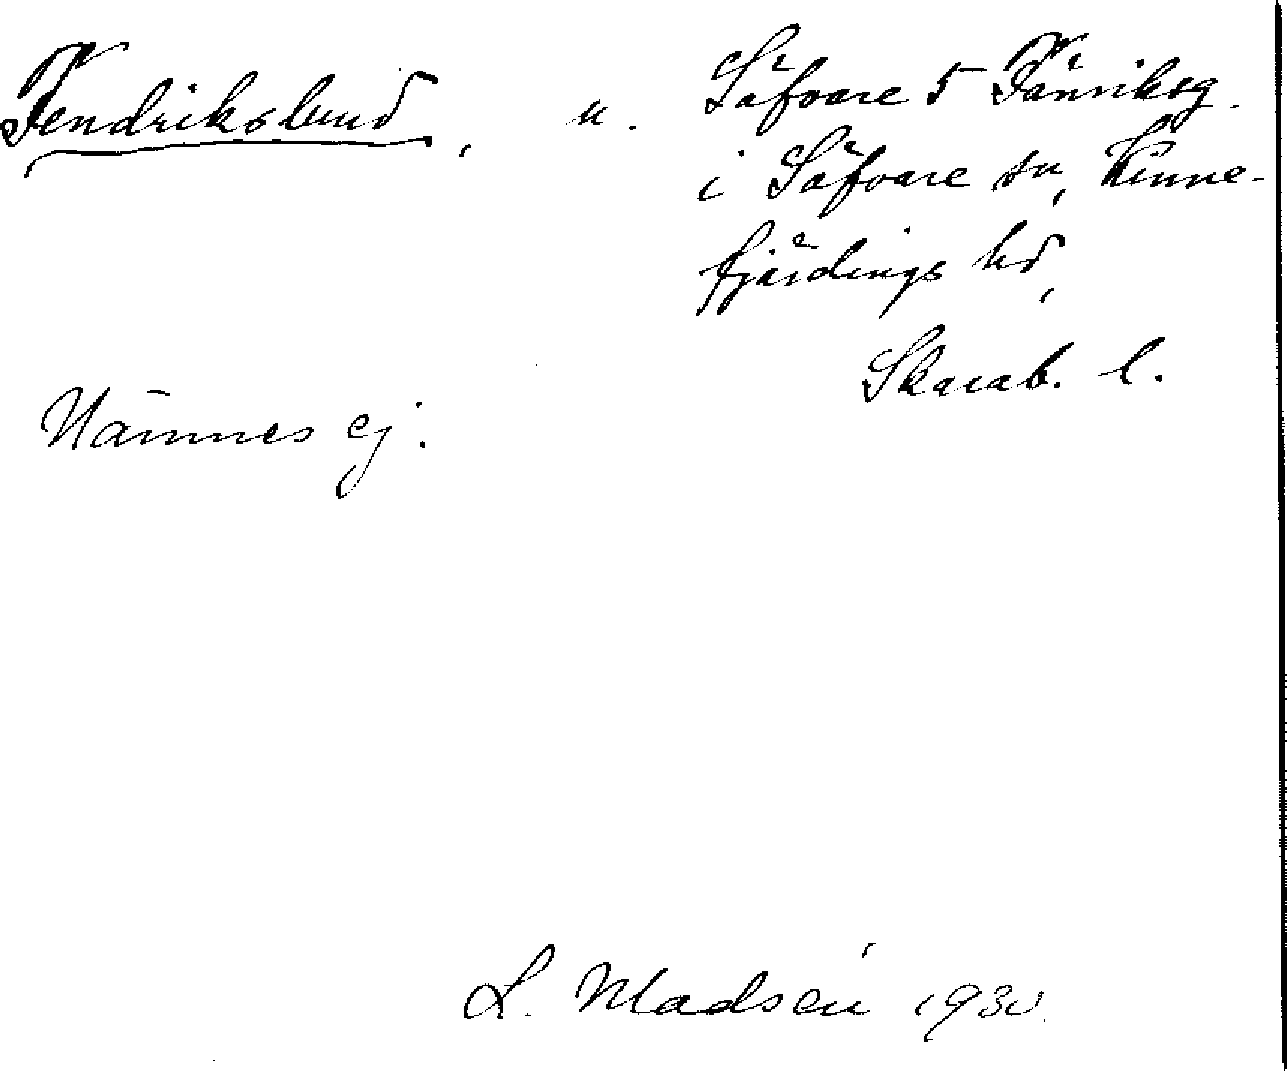 Fendrikslund, u. Säfvare 5 Fänriksg.
i Säfvare sn, Kinne-
fjärdings hd,
Skarab. l.
Nämnes ej.
L. Madsén 1930.